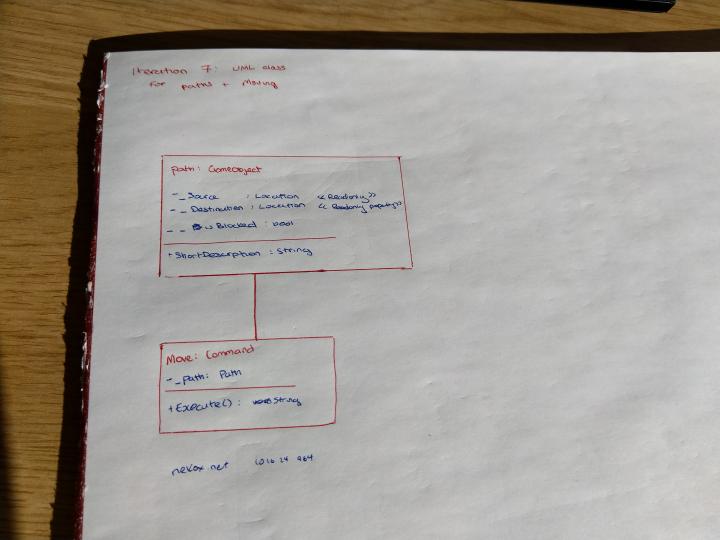 Iteration 7: UML class
For paths + Moving
path: GameObject
- _Source : Location <<Readonly>>
- _Destination : Location << Readonly property>>
- _ isBlocked : bool
+ShortDescription : String
Move: Command
- _path: Path
+Execute() : String